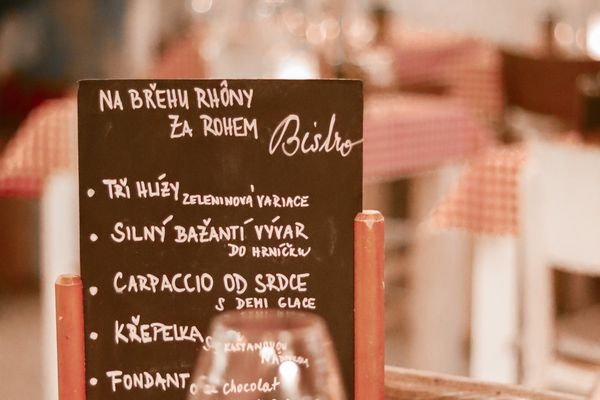 NA BŘEHU RHÔNY
ZA ROHEM Bistro
TŘI HLÍZY ZELENINOVÁ VARIACE
SILNÝ BAŽANTÍ VÝVAR
DO HRNÍČKŮ
CARPACCIO OD SRDCE
S DEMI GLACE
KŘEPELKA
KAŠTANOVOU
NÁDIVKOU
FONDANT
chocolat